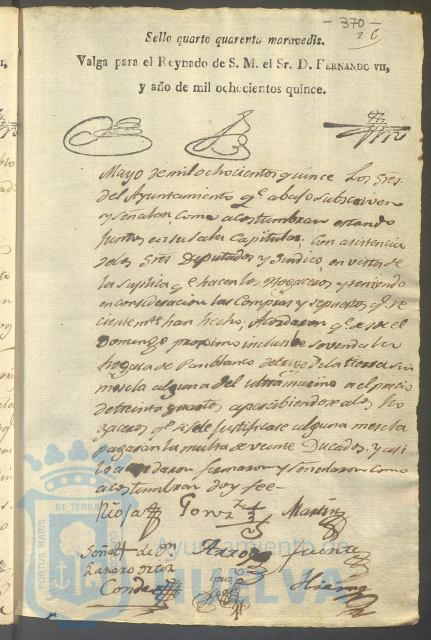 - 370 -
26
Sello quarto quarenta maravedis.
Valga para el Reynado de S. M. el Sr. D. FERNANDO VII,
y año de mil ochocientos quince.
Mayo de mil ochocientos quince Los Sres.
del Ayuntamiento qe. abajo subscriven
y señalan, como acostumbran estando
juntos en su sala Capitular, con asistencia
de los Sres Diputados y Sindico, en vista de
la suplica qe. hacen los Hogaceros y teniendo
en consideracion las Compras y repuestos qe. se
han hecho, Acordaron qe. desde el
Domingo proximo inclusibe se venda la
hogasa de Pan blanco del trigo de la tierra sin
mescla alguna del ultramarino a el precio
de treinta quartos apercibiendose a los Ho
gaceros qe. si se justificase alguna mescla
pagaran la multa de veinte Ducados. y asi
lo acordaron firmaron y señalaron como
acostumbran doy fee -
Rioja Gomz Martin
Señal + de Dn.
Lazaro
Conde
PORTUS MARIS ET TERRAE
Ayuntamiento de
HUELVA